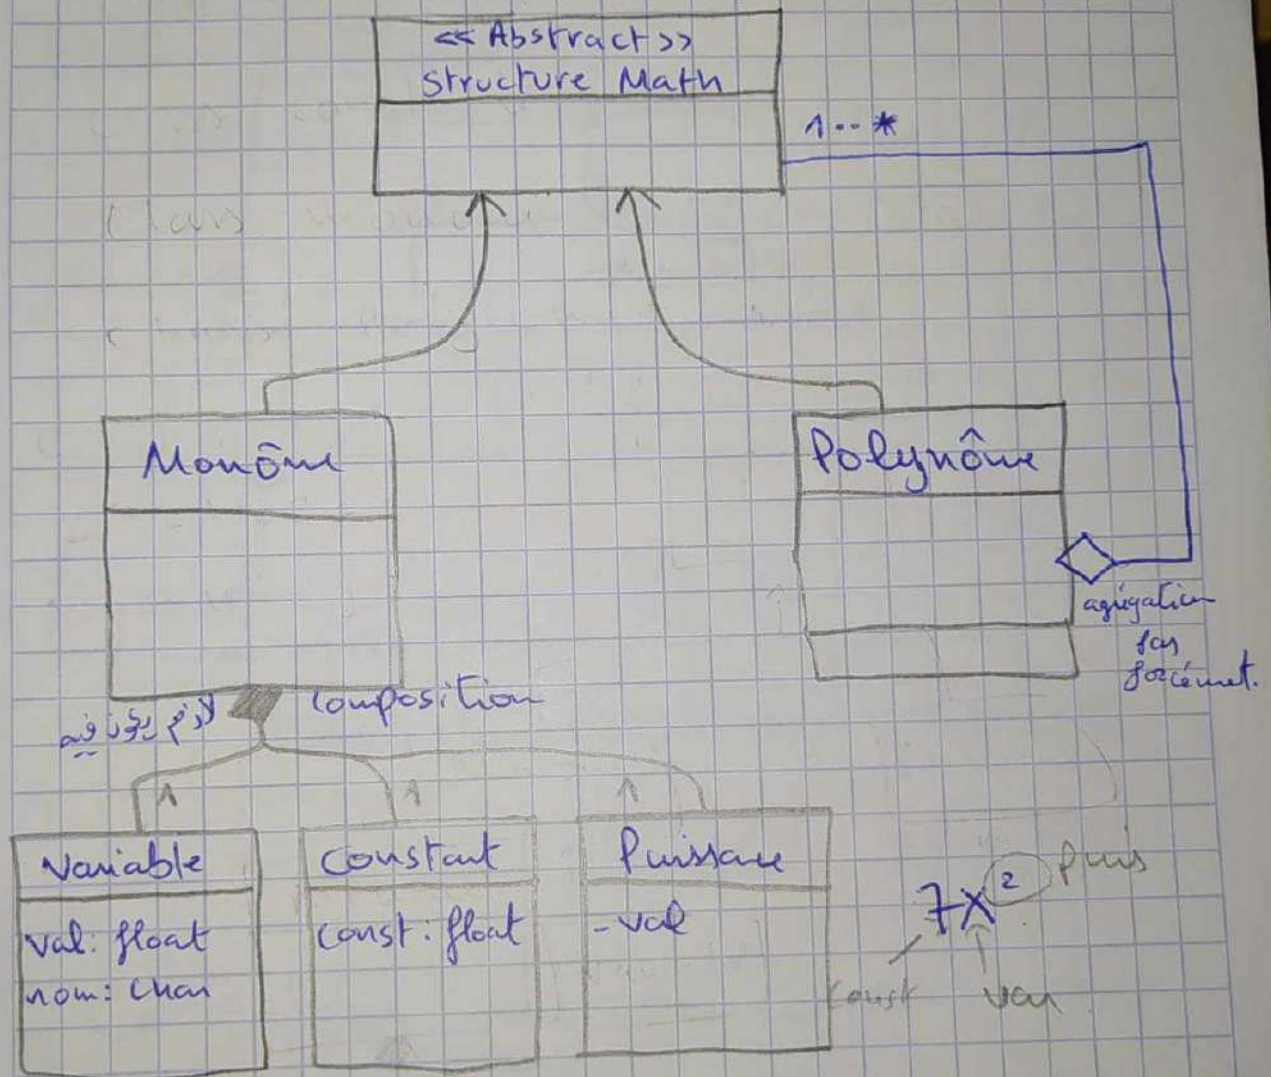 << Abstract >>
Structure Math
1..*
Monôme
Polynôme
agrégation
pas
forcément.
لازم يكونو فيه
composition
1
1
1
Variable
val: float
nom: char
Constant
const: float
Puissance
- val
7x²
puis
const
var